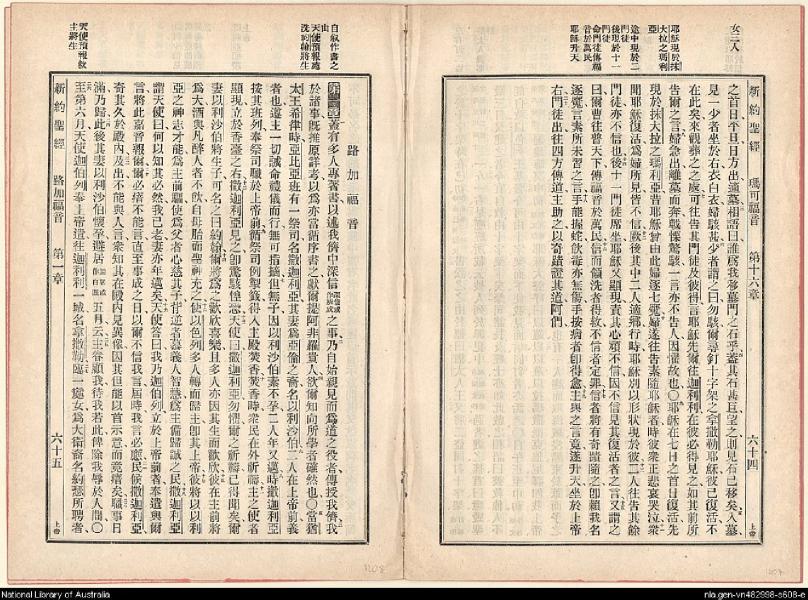 新約聖經 瑪可福音 第十六章 六十四 上帝
耶穌現於抹
大拉之瑪利
亞
途中現於二
門徒
後現於十一
門徒
命門徒傳福
音於萬民
耶穌升天
之首日平旦日方出適墓相語曰誰爲我移墓門之石乎蓋其石甚巨望之則見石已移矣入墓
見一少者坐於右衣白衣婦駭甚少者謂之曰勿駭爾尋釘十字架之拿撒勒耶穌彼已復活不
在此矣來觀葬之之處可往告其門徒及彼得言耶穌先爾往迦利利在彼必得見之如其前所
告爾之言婦急出離墓而奔戰慄驚駭一言亦不告人因懼故也〇耶穌在七日之首日復活先
現於抹大拉之瑪利亞昔耶穌曾由此婦逐七鬼婦遂往告素隨耶穌者時彼衆正悲哀哭泣衆
聞耶穌復活爲婦所見皆不信厥後其中二人適鄉行時耶穌別以形狀現於彼二人往告其餘
門徒亦不信也後十一門徒席坐耶穌又顯現責其心頑不信因不信見其復活者之言又謂之
曰爾曹往普天下傳福音於萬民信而領洗者得救不信者定罪信者將有奇蹟隨之卽賴我名
逐鬼言素所未習之言手能握蛇飲毒亦無傷手按病者卽得愈主與之言竟遂升天坐於上帝
右門徒出往四方傳道主助之以奇蹟證其道阿們
自叙作書之
由
天使預報施
洗約翰將生
天使預報救
主將生
路加福音
蓋有多人專著書以述我儕中深信之事乃自始親見而爲道之役者傳授我儕我
於諸事既推原詳考以爲亦當循序書之獻爾提阿非羅貴人欲爾知向所學者確然也〇當猶
太王希律時亞比亞班有一祭司名撒迦利亞其妻爲亞倫之裔名以利沙伯二人在上帝前義
者也遵主一切誡命禮儀而行無可指摘但無子因以利沙伯素不孕二人年又邁時撒迦利亞
按其班列奉祭司職於上帝前循祭司例掣籤得入主殿焚香焚香時衆民在外祈禱主之使者
顯現立於香臺之右撒迦利亞見之卽驚駭惶恐天使曰撒迦利亞勿懼爾之祈禱已得聞矣爾
妻以利沙伯將生子可名之曰約翰爾將爲之歡欣喜樂且多人亦因其生而歡欣彼在主前將
爲大酒與凡醉人者不飲自母胎而聖神充之使以色列多人轉而歸主卽其上帝彼將以以利
亞之神志才能爲主前驅使爲父者心慈其子悖逆者慕義人智慧爲主備歸誠之民撒迦利亞
謂天使曰何以知其必然我已老妻亦年邁矣天使答曰我乃迦伯列立於上帝前者奉遣與爾
言將此嘉音報爾爾必瘖不能言直至事成之日以爾不信我言屆時我言必應民候撒迦利亞
奇其久於殿內及出不能與人言衆知其在殿內見異像因其但能以首示意而竟瘖矣職事日
滿乃歸此後其妻以利沙伯懷孕避居五月云主眷顧我待我若此俾除我辱於人間〇
至第六月天使迦伯列奉上帝遣往迦利利一城名拿撒勒臨一處女爲大衛裔名約瑟所聘者
新約聖經 路加福音 第一章 六十五 上帝
National Library of Australia
nla.gen-vn482998-s608-e